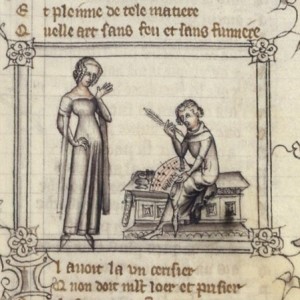 Et pleinne de tele matiere
Quelle art sans feu et sans fumiere
l avoit la vn cerisier
Q uon doit mlt loer et prisier